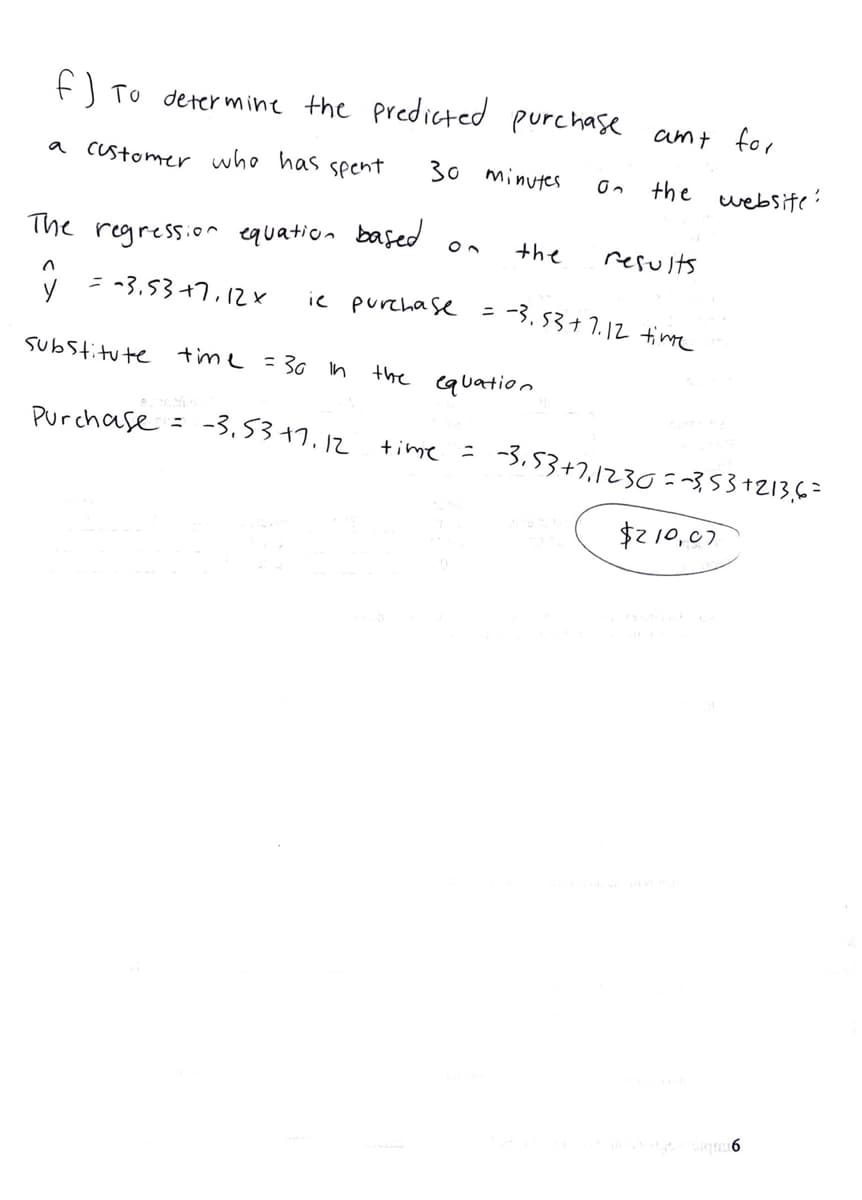 f) To determine the predicted purchase amt for
a customer who has spent 30 minutes on the website:
The regression equation based on the results
ŷ = -3.53+7.12x ie purchase = -3.53+7.12 time
substitute time = 30 in the equation
Purchase = -3.53+7.12 time = -3.53+7.1230 = -3.53+213.6=
$210.07
6